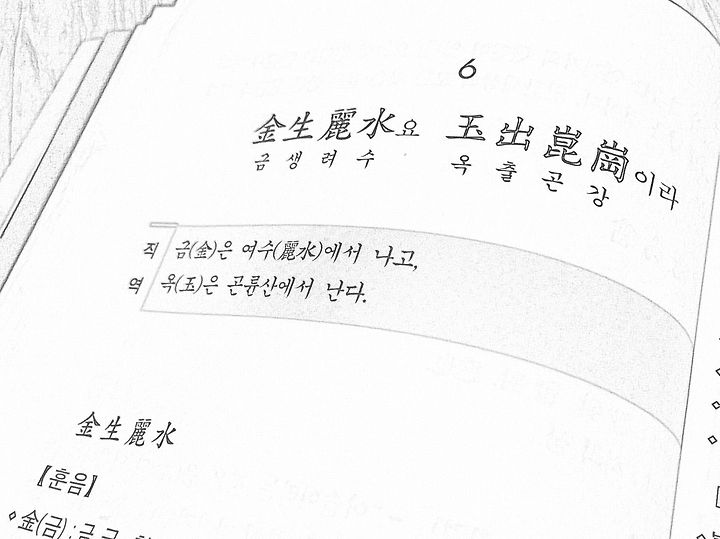 6
金生麗水요 玉出崑崗이라
금생려수 옥출곤강
직역
금(金)은 여수(麗水)에서 나고,
옥(玉)은 곤륜산에서 난다.
金生麗水
【훈음】
◇金(금):